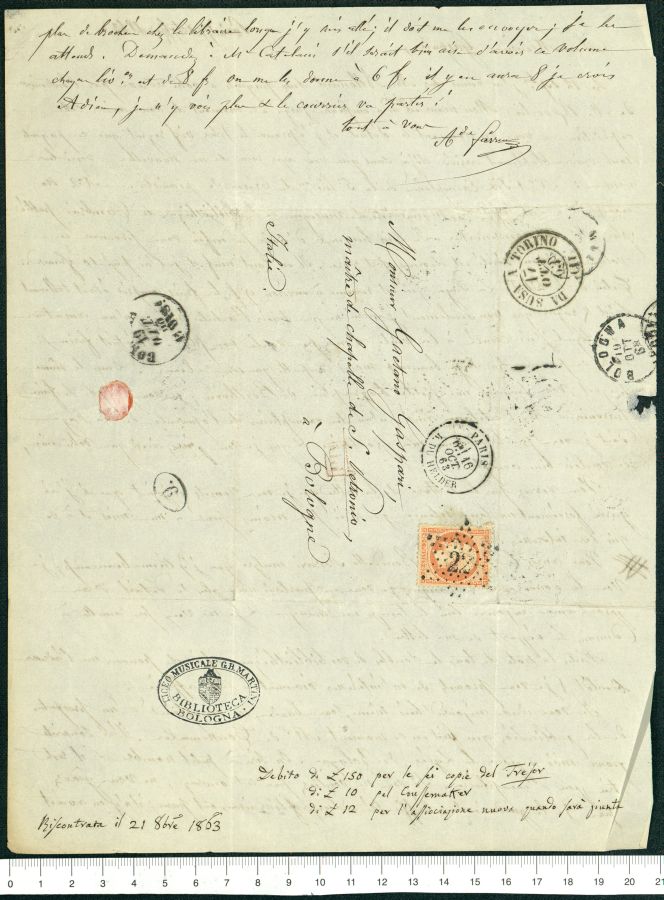 plus de brocher chez le libraire lorsque j'y suis allé; il doit me les envoyer; je les
attends. Demandez à Mr Catelani s'il serait bien aise d'avoir ce volume
chaque liv.on est de 8 f. on me les donne à 6 f. il y en aura 8 je crois
Adieu, je n'y vois plus & le courrier va partir!
tout à vous
Ad de
Monsieur Gaetano Gaspari,
maître de chapelle de S. Petronio,
à Bologne
Italie.
DA SUSA A TORINO
BOLOGNA
19 OTT 63
PARIS
R. DU HELDER
16
OCT
63
22
9.
LICEO MUSICALE G.B. MARTINI
BIBLIOTECA
BOLOGNA
Debito di £ 150 per le sei copie del Trésor
di £ 10 pel Coussemaker
di £ 12 per l'associazione nuova quando sarà giunta
Riscontrata il 21 8bre 1863
0 1 2 3 4 5 6 7 8 9 10 11 12 13 14 15 16 17 18 19 20 21